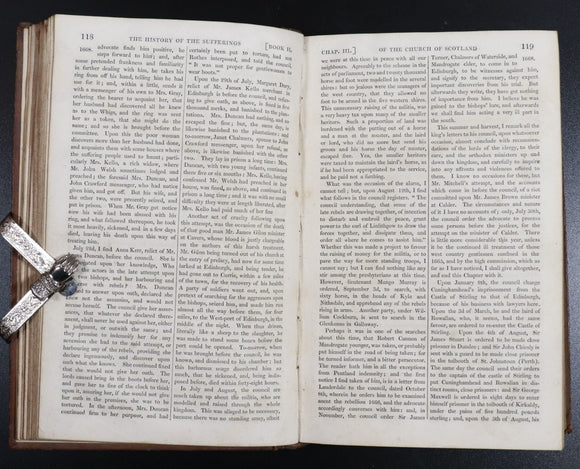 118
THE HISTORY OF THE SUFFERINGS
[BOOK II.
1668.
advocate finds him positive, he
steps forward to him; and, after
some pretended frankness and familiarity
in further dealing with him, he takes his
ring from off his hand, telling him he had
use for it; and, within a little, sends it
with a messenger of his own to Mrs. Gray,
ordering the bearer to acquaint her, that
her husband had discovered all he knew
as to the Whigs, and the ring was sent
her as a token, that she might do the
same; and so she is brought before the
committee. Upon this the poor woman
discovers more than her husband had done,
and acquaints them with some houses where
the suffering people used to haunt; particularly
Mrs. Kello, a rich widow, where
Mr. John Welsh sometimes lodged and
preached; the foresaid Mrs. Duncan, and
John Crawford messenger, who had notice
given him, and got off. But his wife, and
the other two, were presently seized, and
put in prison. When Mr. Gray got notice
how his wife had been abused with his
ring, and what followed thereupon, he took
it most heavily, sickened, and in a few days
died, leaving his death upon this way of
treating him.
July 23d, I find Anna Kerr, relict of Mr.
Duncan, before the council. She is
interrogated upon her knowledge, Who
the actors in the late attempt upon
two bishops, and her harbouring and
with rebels? Mrs. Duncan
upon oath, declared she
knew not the assassins, and would not
accuse herself. The council give her assurances,
that whatever she declared there-
anent, shall never be used against her, either
in judgment, or outwith the same; and
they promise to indemnify her for any
accession she had to the said attempt, or
harbouring any of the rebels, providing she
declare ingenuously, and discover upon
oath what she knew. She continued fixed
that she would not give her oath. The
lords caused bring in the boots before her,
and gave her to five of the clock to think
upon it, assuring her, if she would not give
her oath in the premises, she was to be
tortured. In the afternoon, Mrs. Duncan
continued firm to her purpose, and had
certainly been put to torture, had not
Rothes interposed, and told the council,
"It was not proper for gentlewomen to
wear boots."
Upon the 29th of July, Margaret Dury,
relict of Mr. James Kello merchant in
Edinburgh is before the council, and refusing
to give oath, as above, is fined in five
thousand merks, and banished to the plantations.
Mrs. Duncan had nothing, and so
escaped the fine; but, the same day, is
likewise banished to the plantations. To-
morrow, Janet Chalmers, spouse to John
Crawford messenger, upon her refusal, as
above, is likewise banished with the other
two. They lay in prison a long time: Mrs.
Duncan, with two young infants, continued
there five or six months: Mrs. Kello, having
confessed Mr. Welsh had preached in her
house, was fined, as above, and confined in
prison a long time; and it was with no small
difficulty they were at length liberated, after
Mrs. Kello had paid much of her fine
Another act of cruelty following upon
this attempt, was the occasion of the death
of that good man Mr. Gilon minister at
Cavers, whose blood is justly chargeable
on the authors of this harsh treatment.
Mr. Gilon being turned out of his church at the
entry of prelacy, had now for some time
lurked at Edinburgh, and being tender, he
had gone out to Currie, within a few miles
of the town, for the recovery of his health.
A party of soldiers went out, and, upon
pretext of searching for the murderers of the
bishops, seized him, and made him run
almost all the way before them, for four
miles, to the West-port of Edinburgh, in the
middle of the night. When thus driven,
literally like a sheep to the slaughter, he
was made to stand some hours before the
port could be opened. To-morrow, when
he was brought before the council, he was
known, and dismissed to his chamber; but
this barbarous usage disordered him so
much, that he sickened, and, being indisposed
before, died within forty-eight hours.
In July and August, the council are
much taken up about the militia, who are
modelled and raised through the whole
kingdom. This was alleged to be necessary,
because there was no standing army, albeit
CHAP. III.]
OF THE CHURCH OF SCOTLAND
119
1668.
we were at this time in peace with all our
neighbours. Agreeably to the release in the
acts of parliament, two and twenty thousand
horse and foot were modelled in the several
shires; but so jealous were the managers of
the west country, that they allowed no
foot to be armed in the five western shires.
This unnecessary raising of the militia, was
a very heavy tax upon many of the smaller
heritors. Such a proportion of land was
burdened with the putting out of a horse
and a man at the muster, and the laird
or lord, who did no more but send his
groom and his horse the day of muster,
escaped free. Yea, the smaller heritors
were taxed to maintain the laird's horse, as
if he had been appropriated to the service,
and he paid not a farthing.
What was the occasion of the alarm, I
cannot tell; but, upon August 13th, I find
what follows in the council registers. "The
council understanding, that some of the
late rebels are drawing together, of intention
to disturb and embroil the peace, grant
power to the earl of Linlithgow to draw the
forces together, and dissipate them, and
order all where he comes to assist him."
Whether this was made a project to favour
the raising of money for the militia, or to
pave the way for more standing troops, I
cannot say; but I can find nothing like any
stir among the presbyterians at this time.
However, lieutenant Mungo Murray is
ordered, September 3d, to search, with
sixty horse, in the bonds of Kyle and
Nithsdale, and apprehend any of the rebels
rising in arms. Another party, under William
Cockburn, is sent to search in the
Glenkenns in Galloway.
Perhaps it was in one of the searches
about this time, that Robert Cannon of
Mandrogate younger, was taken, or probably
put himself in the road of being taken; for
he turned informer, and a bitter persecutor.
The reader hath him in all the exceptions
from Pentland indemnity; and the first
notice I find taken of him, is in a letter from
Lauderdale to the council, dated October
8th, wherein he orders them to be examined
anent the rebellion 1666, and the advocate
accordingly converses with him; and, in
November, the council order Sir James
Turner, Chalmers of Waterside, and
Mandrogate elder, to come in to
Edinburgh, to be witnesses against him,
and signify to the secretary, that they expect
discoveries from him in due time. And
afterwards they write, they have got nothing
of importance from him. I believe he was
gained to the bishops' lure, and afterwards
we shall find him acting a very ill part to
the south.
This summer and harvest, I remark all the
king's letters to his council, upon whatsoever
occasion, almost conclude with recommendations
of the lords of the clergy, to their
care, and the orthodox ministers up and
down the kingdom, and carefully to inquire
into any affronts and violences offered to
them. I know no occasions for them, but
Mr. Mitchell's attempt, and the accounts
which come in before the council, of a riot
committed upon Mr. James Brown minister
at Calder. The circumstances and nature
of it I have no accounts of; only, July 30th,
the council order the advocate to process
some persons before the justices, for the
attempt on the minister of Calder. There
is little more considerable this year, unless
it be the continued ill treatment of those
west country gentlemen confined in the
1665, and by the high commission, which as
far as I have noticed, I shall give altogether,
and end this Chapter with it.
Upon January 9th, the council change
Cuninghamhead's imprisonment from the
Castle of Stirling to that of Edinburgh,
because of his business with lawyers here.
Upon the 2d of March, he and the laird of
Rowallan, who, it seems, had the same
favour, are ordered to re-enter the Castle of
Stirling. Upon the 4th of August, Sir
James Stuart is ordered to be made close
prisoner in Dundee; and Sir John Chiesly is
sent with a guard to be made close prisoner
in the tolbooth of St. Johnstoun (Perth).
The same day the council send their orders
to the captain of the castle of Stirling to
put Cuninghamhead and Rowallan in distinct
rooms, close prisoners: and Sir George
Maxwell is ordered in eight days to enter
himself prisoner in the tolbooth of Kirkaldy,
under the pains of five hundred pounds
sterling; and, upon the 5th of August, his